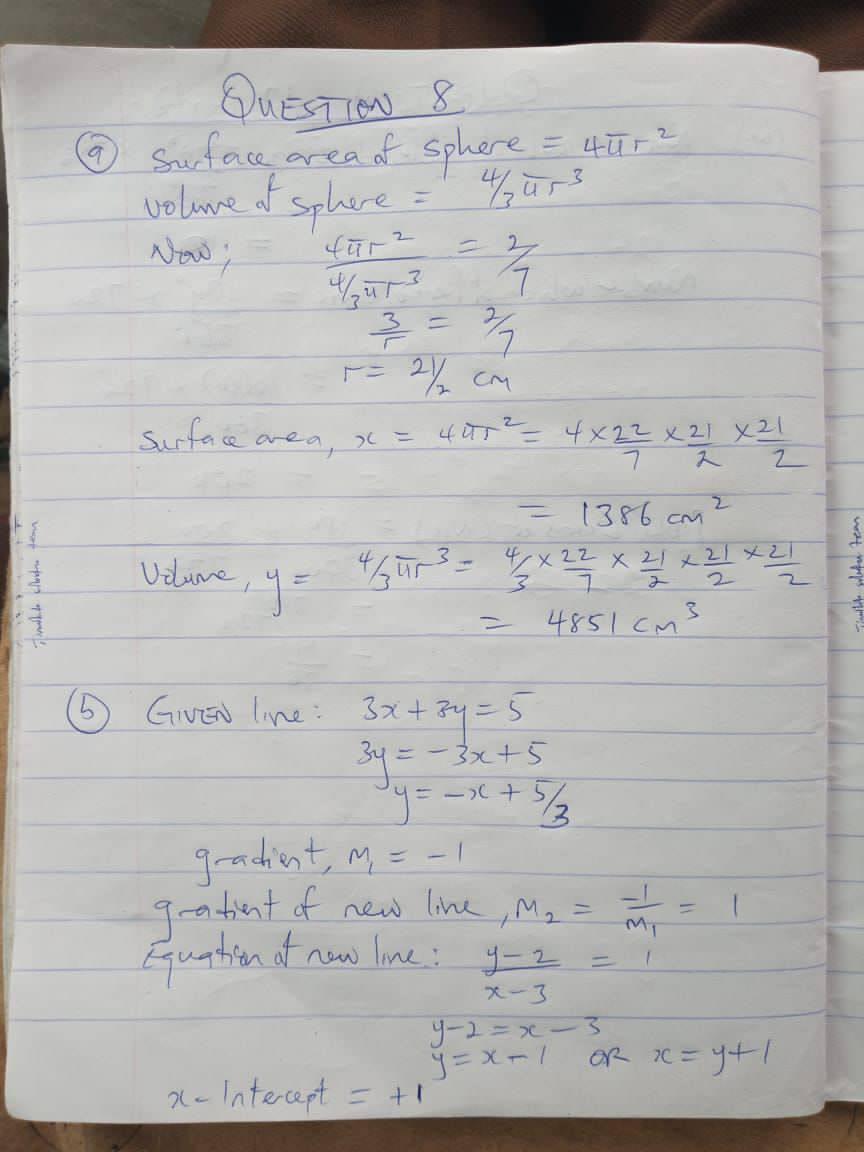 QUESTION 8
(a) Surface area of sphere = 4πr²
Volume of sphere = 4/3 πr³
Now; 4πr² / (4/3 πr³) = 2/7
3/r = 2/7
r = 21/2 cm
Surface area, x = 4πr² = 4 × 22/7 × 21/2 × 21/2
= 1386 cm²
Volume, y = 4/3 πr³ = 4/3 × 22/7 × 21/2 × 21/2 × 21/2
= 4851 cm³
(b) GIVEN line: 3x + 3y = 5
3y = -3x + 5
y = -x + 5/3
gradient, M₁ = -1
gradient of new line, M₂ = -1/M₁ = 1
Equation of new line: (y-2)/(x-3) = 1
y-2 = x-3
y = x-1 OR x = y+1
x-Intercept = +1